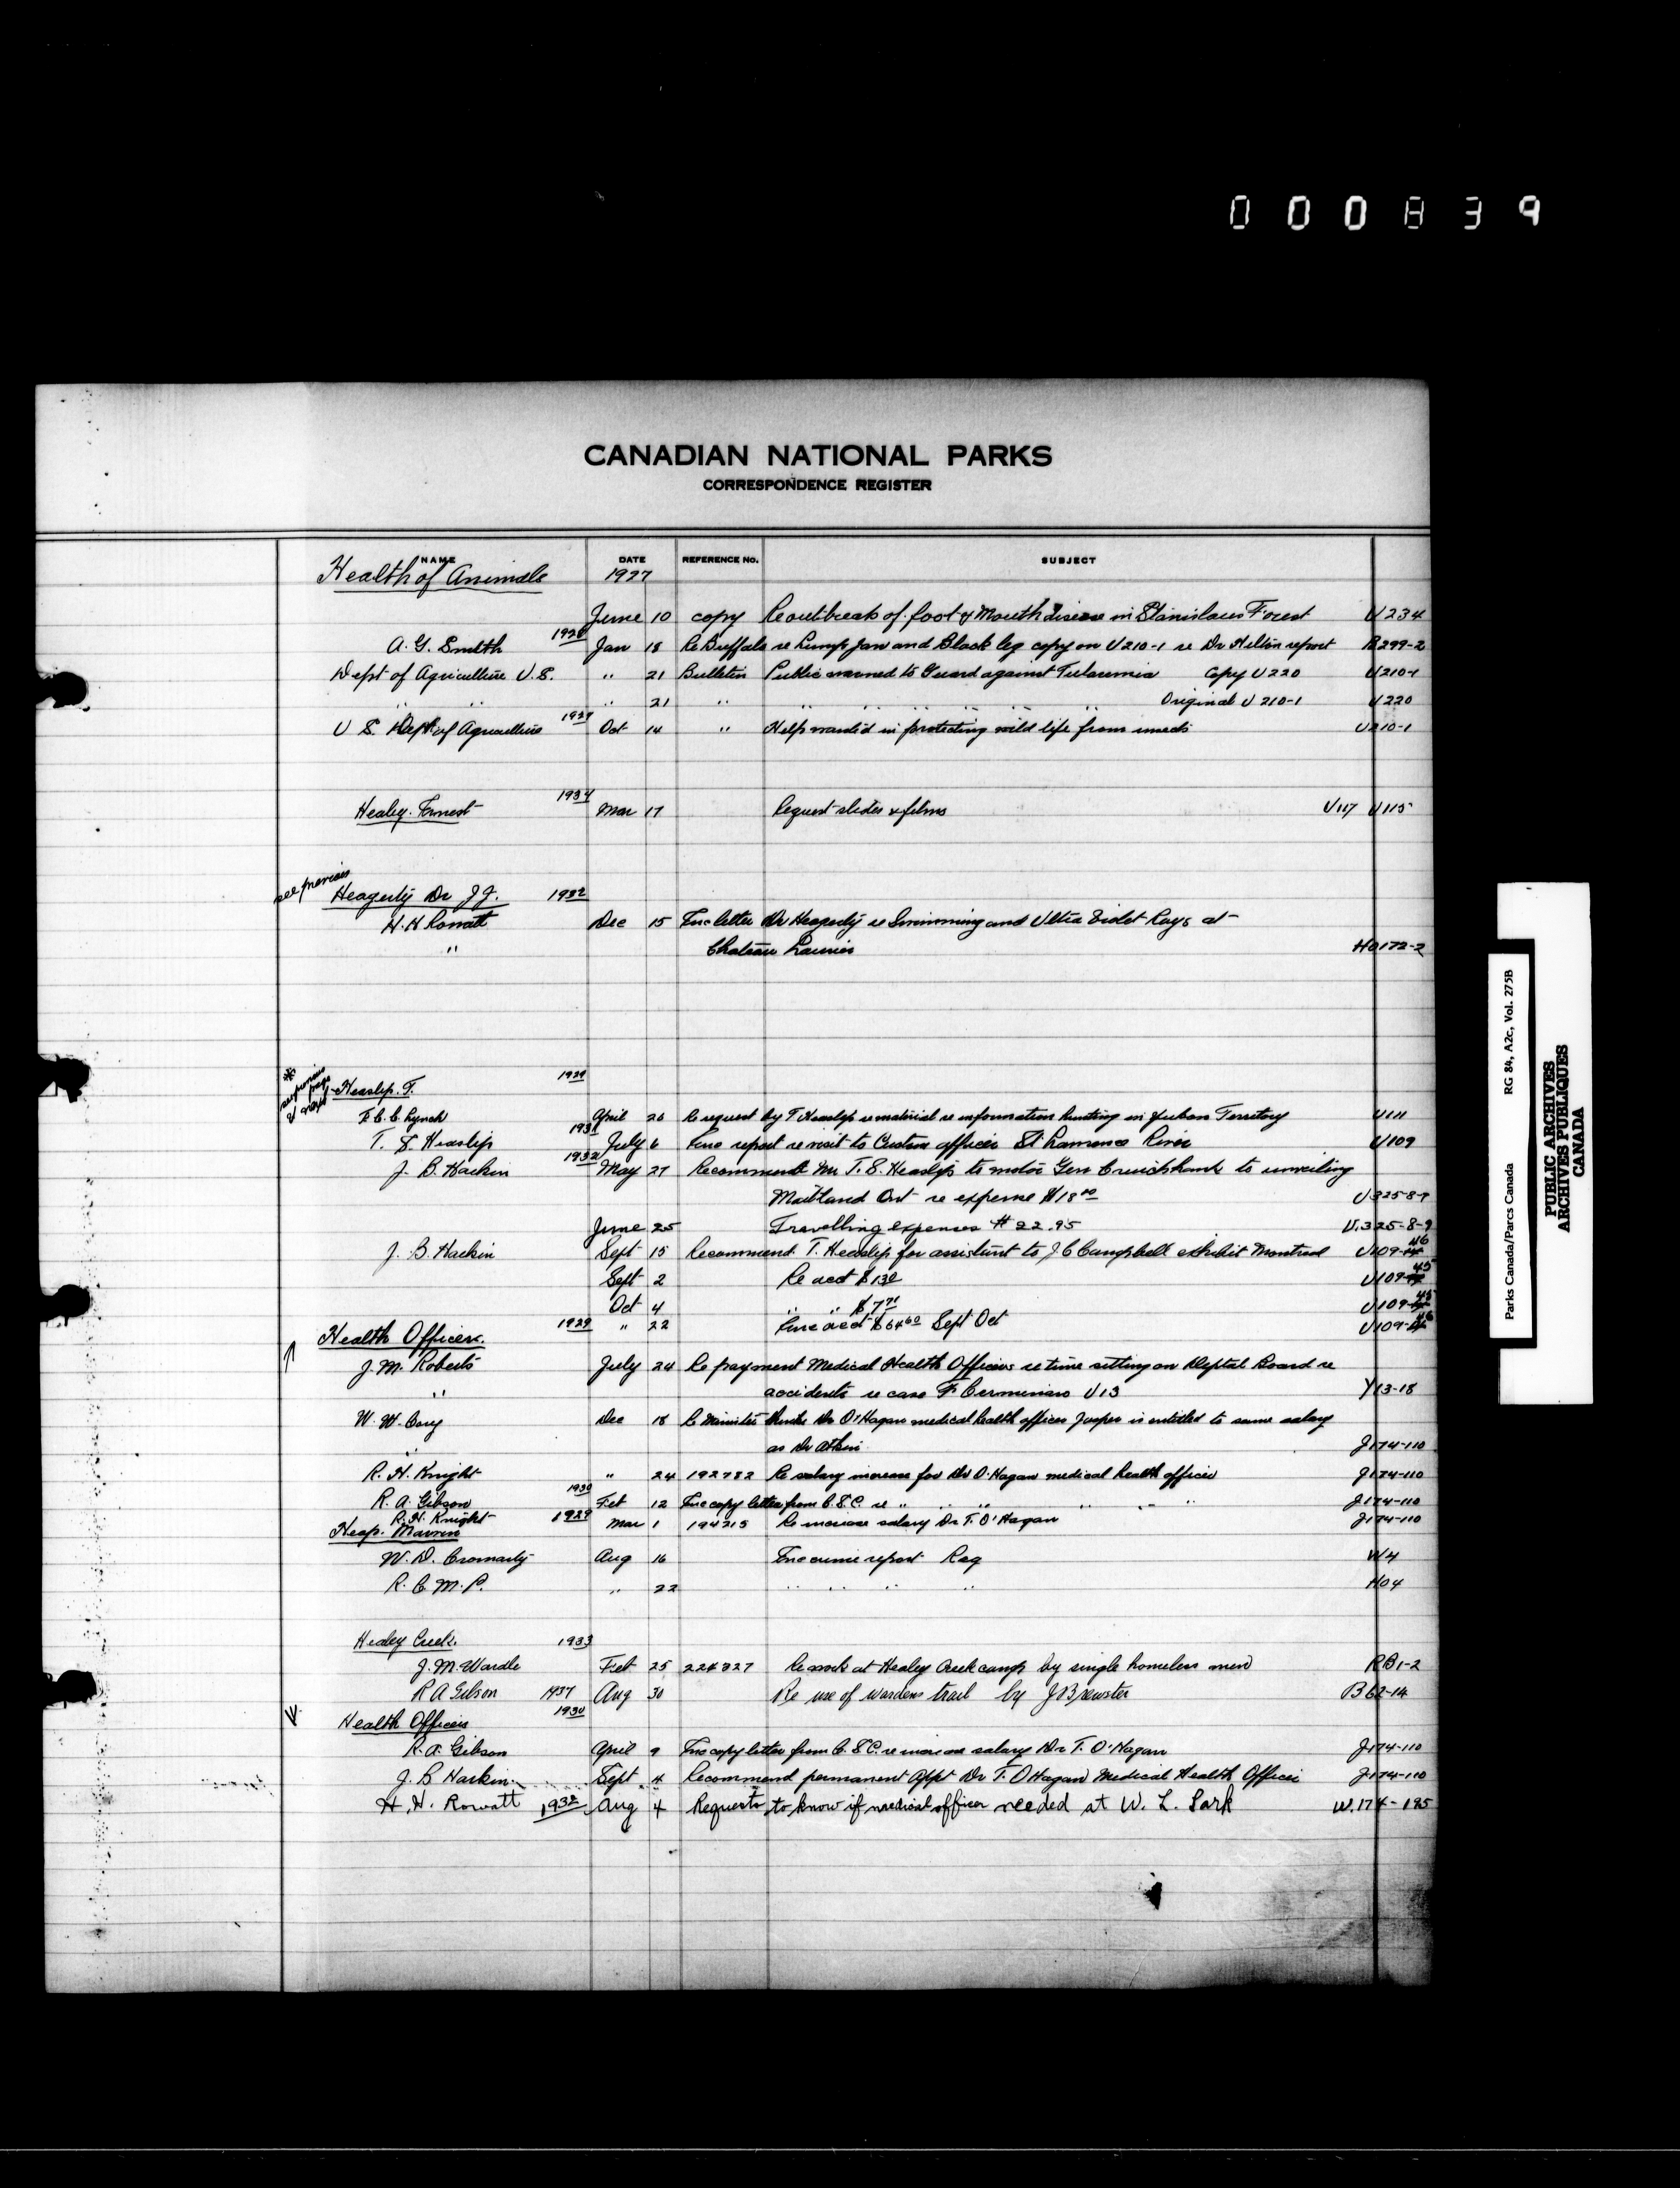 000839
CANADIAN NATIONAL PARKS
CORRESPONDENCE REGISTER
NAME DATE REFERENCE No. SUBJECT
Health of Animals 1927
June 10 copy Re outbreak of foot & Mouth disease in Stanislaus Forest U234
A. G. Smith 1928 Jan 18 Re Buffalo re Lump Jaw and Black leg copy on U210-1 re Dr report B299-2
Dept of Agriculture U.S. " 21 Bulletin Public warned to Guard against Tularemia Copy U220 U210-1
" " " 21 " " " " " " " Original U 210-1 U220
U S. Dept of Agriculture Oct 14 " Help wanted in protecting wild life from U210-1
Healey. Ernest 1934 Mar 17 Request slides & films U117 U115
see previous
Heagerty Dr J J. 1932
H. H Rowatt Dec 15 Enc letter Dr Heagerty re Swimming and Ultra Violet Rays at
" Chateau Laurier H0172-2
* see previous page & next
Heaslip. T. 1929
F. C. C. Lynch April 26 Re request by T Heaslip re material re information hunting in Yukon Territory U111
T. S. Heaslip July 6 Enc report re visit to Custom officers St Lawrence River U109
J. B. Harkin 1932 May 27 Recommends Mr T. S. Heaslip to motor Gen Cruickshank to unveiling
Maitland Ont re expense $18.00 U325-8-9
June 25 Travelling expenses # 22.95 U.325-8-9
J. B. Harkin Sept 15 Recommend T. Heaslip for assistant to J C Campbell exhibit Montreal U109-46
Sept 2 Re acct $ U109-45
Oct 4 " " U109-45
" 22 Enc acct Sept Oct U109-46
Health Officers. 1929
J. M. Roberts July 24 Re payment Medical Health Officers re time sitting on Deptal Board re
" accidents re case F. U13 Y13-18
W. W. Cory Dec 18 Re Minister thinks Dr O'Hagan medical health officer Jasper is entitled to same salary
" as Dr Atkin J174-110
R. H. Knight " 24 192782 Re salary increase for Dr O'Hagan medical health officer J174-110
R. A. Gibson 1930 Feb 12 Enc copy letter from C.S.C. re " " " " " " J174-110
R. H. Knight Mar 1 194215 Re increase salary Dr T. O'Hagan J174-110
Heap. 1929
W. D. Cromarty Aug 16 Enc crime report Reg W4
R. C. M. P. " 22 " " " " H04
Healey Creek. 1933
J. M. Wardle Feb 25 224827 Re work at Healey Creek camp by single homeless men RB1-2
R A Gibson 1937 Aug 30 Re use of wardens trail by J Brewster B62-14
Health Officers 1930
R. A. Gibson April 9 Enc copy letter from C. S C. re increase salary Dr T. O'Hagan J174-110
J. B Harkin. Sept 4 Recommend permanent Appt Dr T. O Hagan Medical Health Officer J174-110
H. H. Rowatt 1932 Aug 4 Requests to know if medical officer needed at W. L. Park W.174-195
Parks Canada/Parcs Canada RG 84, A2c, Vol. 275B
PUBLIC ARCHIVES
ARCHIVES PUBLIQUES
CANADA